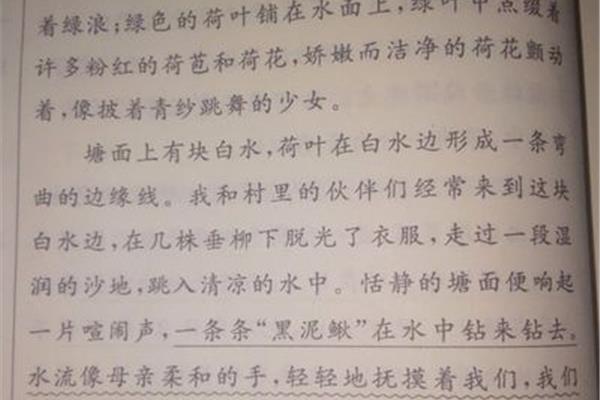 着绿浪;绿色的荷叶铺在水面上,绿叶中点缀着
许多粉红的荷苞和荷花,娇嫩而洁净的荷花颤动
着,像披着青纱跳舞的少女。
塘面上有块白水,荷叶在白水边形成一条弯
曲的边缘线。我和村里的伙伴们经常来到这块
白水边,在几株垂柳下脱光了衣服,走过一段湿
润的沙地,跳入清凉的水中。恬静的塘面便响起
一片喧闹声,一条条“黑泥鳅”在水中钻来钻去。
水流像母亲柔和的手,轻轻地抚摸着我们,我们